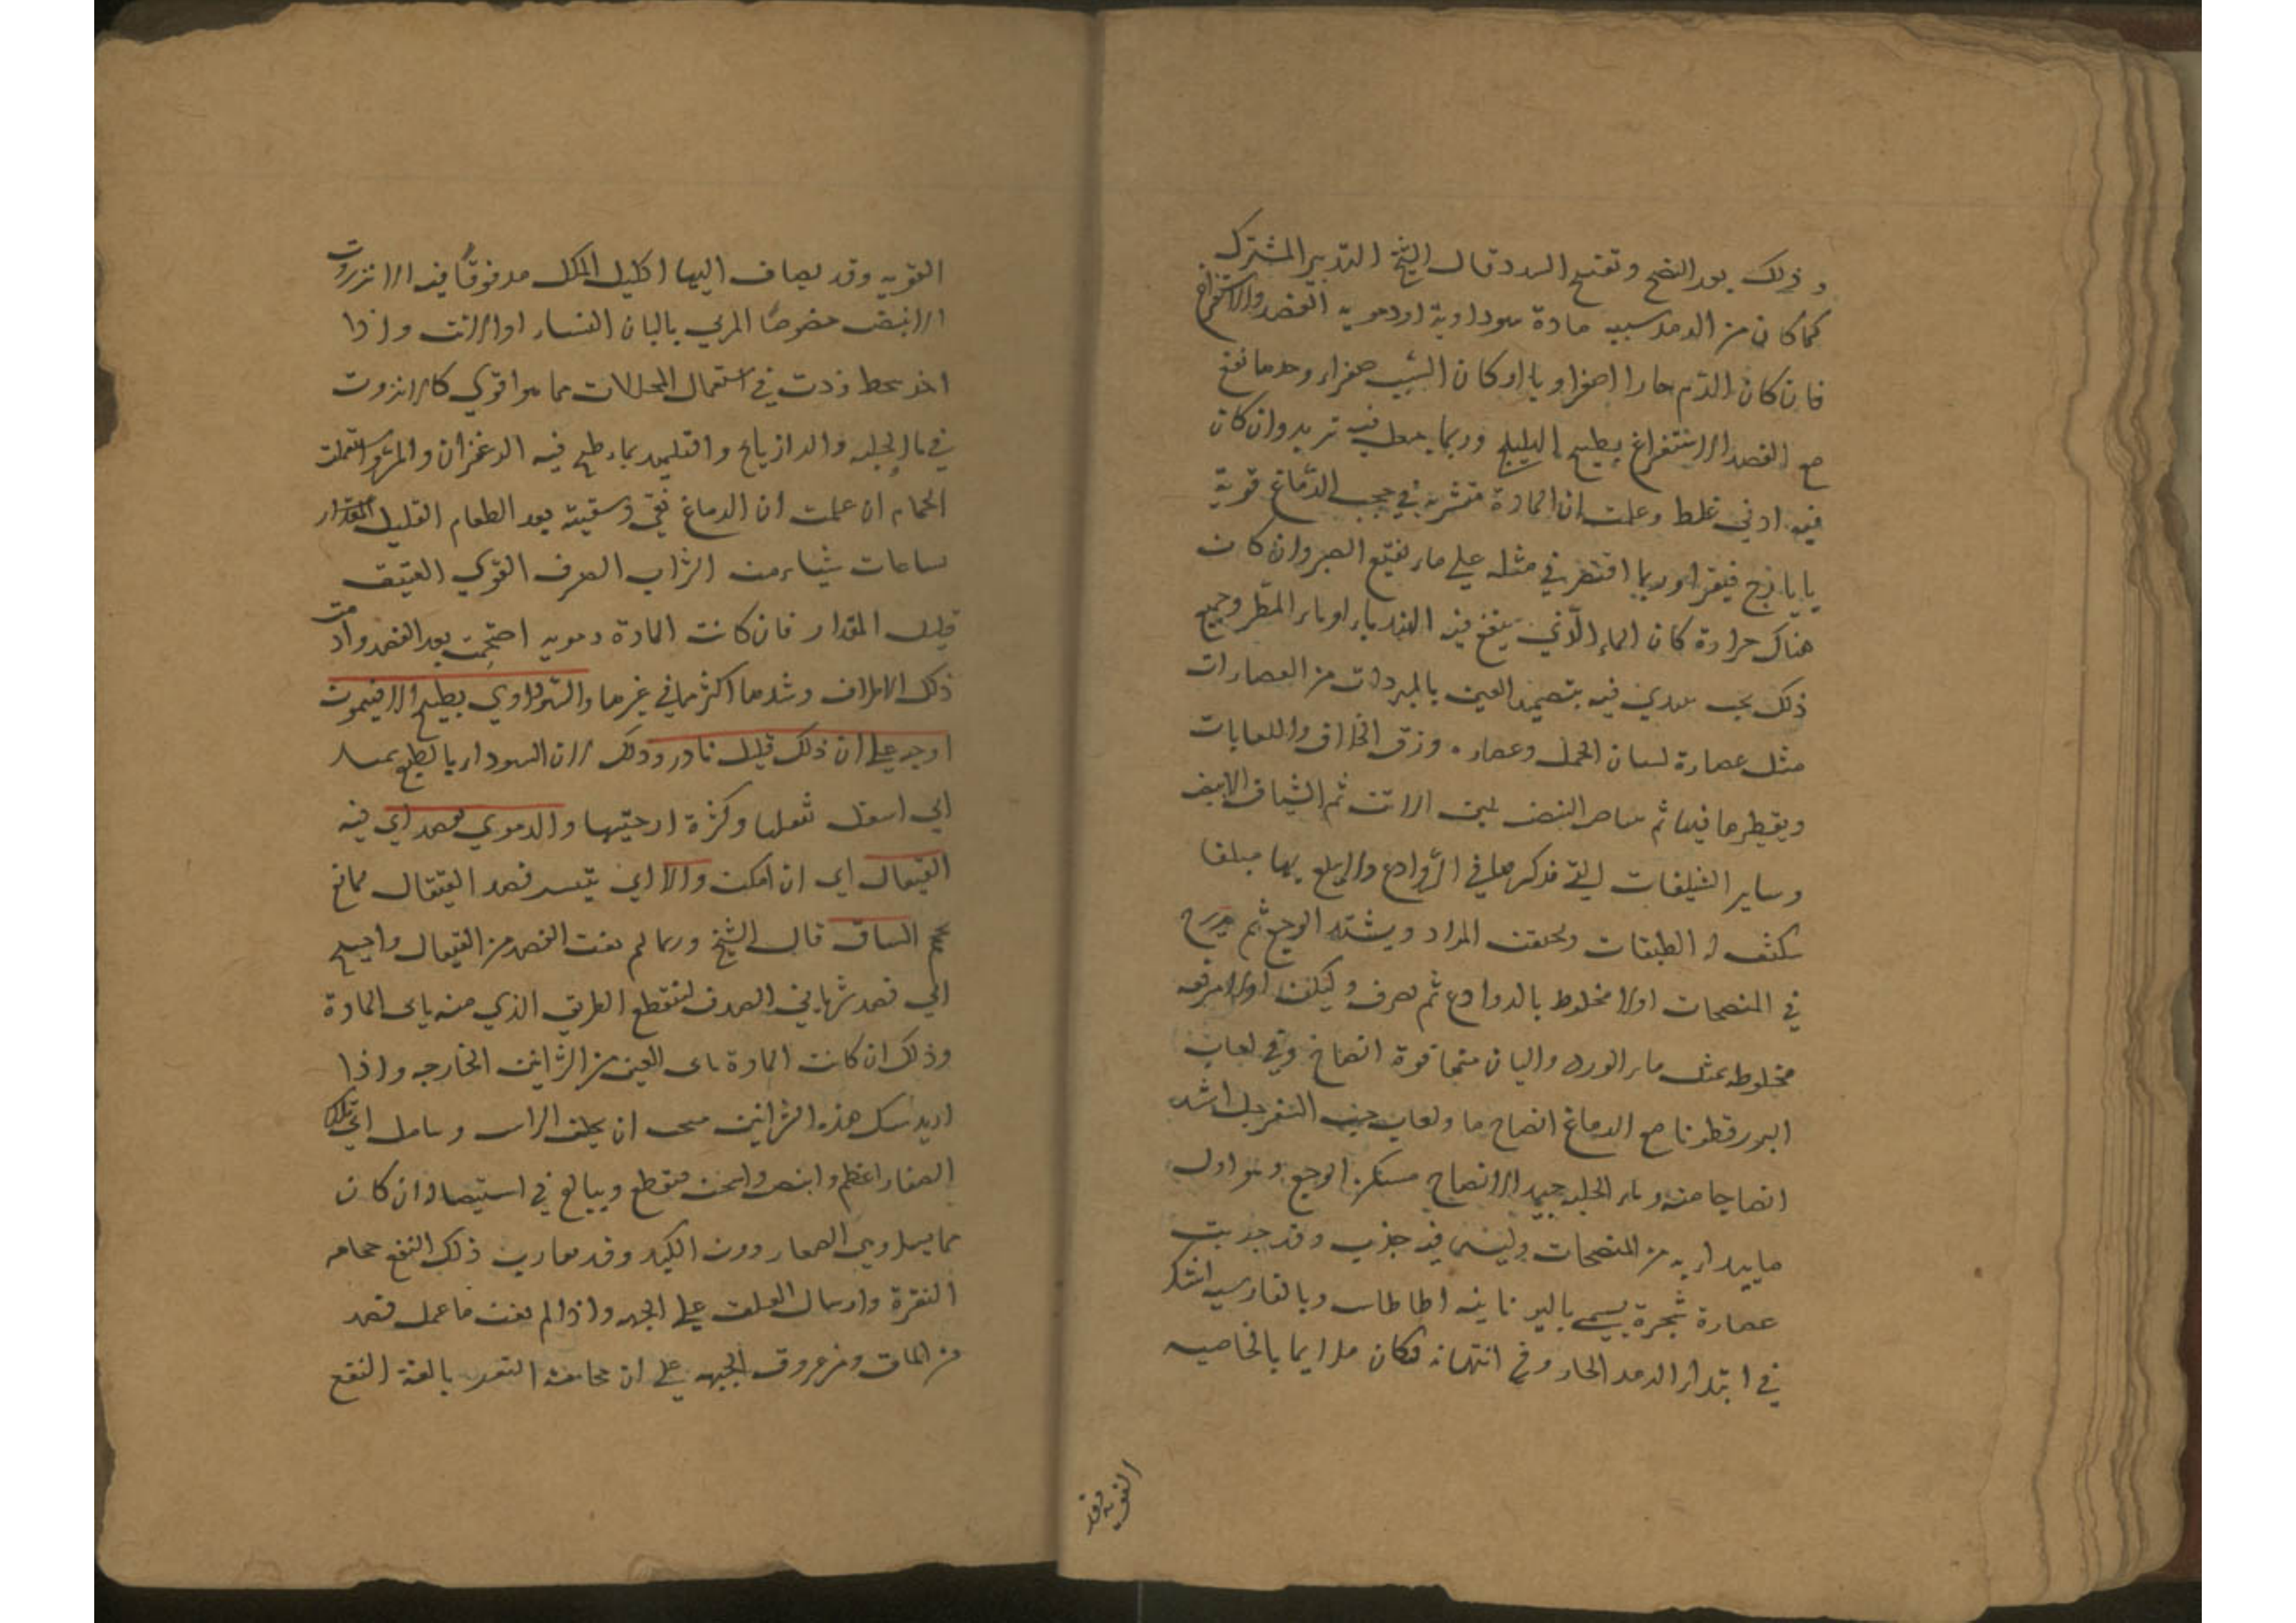 و ذلك بعد النضج و تفتيح السدد قال الشيخ التدبير المشترك
كما كان من الرمد سببه مادة سوداوية او دموية الفصد والاستفراغ
فان كان الدم حارا صفراويا او كان السبب صفراء وحدها نفع
مع الفصد الاستفراغ بطبيخ الهليلج وربما جعل فيه تربد وان كان
فيه ادني غلظ وعلمت ان المادة متشربة في حجب الدماغ قوية
بايارج فيقرا وربما اقتصر في مثله علي ماء نقيع الصبر وان كان
هناك حرارة كان الماء الذي ينقع فيه الهندباء او ماء المطر وجميع
ذلك يجب يبتدي فيه بتضميد العين بالمبردات من العصارات
مثل عصارة لسان الحمل وعصارة ورق الخلاف واللعابات
ويقطرها فيها ثم بياض البيض بلبن الاتن ثم الشياف الابيض
وساير الشيافات التي نذكرها في الروادع ولا يبلغ بها مبلغا
يكثف له الطبقات ويحتقن المواد ويشتد الوجع ثم يدرج
في المنضجات اولا مخلوط بالروادع ثم صرف وليكن اولا مرققه
مخلوطه بمثل ماء الورد والبان منها قوة انضاج وفي لعاب
البزر قطونا مع الدماغ انضاج ما ولعاب حب السفرجل اشد
انضاجا منه وماء الحلبه جيد الانضاج مسكن الوجع وهو اول
ما يبدا به من المنضجات وليس فيه جذب وقد جربت
عصارة شجرة يسمي باليونانيه اطاطاس وبالفارسيه اشك
في ابتداء الرمد الحار وفي انتهائه فكان ملايما بالخاصيه
القويه وقد
القويه وقد يضاف اليها اكليل الملك مدقوقا فيه الانزروت
الابيض خصوصا المربي بالبان النساء او الاتن واذا
اخذ ينحط زدت في استعمال المحللات مما هو اقوي كالانزروت
في ماء الحلبه والرازيانج والتكميد بماء طبخ فيه الزعفران والمر واستعملت
الحمام ان علمت ان الدماغ نقي وسقيته بعد الطعام القليل المقدار
بساعات شيئا من الشراب الصرف القوي العتيق
قليل المقدار فان كانت المادة دمويه احتجمت بعد الفصد وادمت
ذلك الاطراف وشدها اكثر مما في غيرها والسوداوي بطبيخ الافتيمون
اوجبه علي ان ذلك قليل نادر وذلك لان السوداء بالطبع يميل
الي اسفل ثقلها وكثرة ارضيتها والدموي يفصد اي فيه
القيفال اي ان امكن والا اي يتعسر فصد القيفال لمانع
الساق قال الشيخ وربما لم يغن الفصد من القيفال واحتيج
الي فصد شرياني الصدغ لينقطع الطريق الذي منه ياتي المادة
وذلك ان كانت المادة ياتي العين من الشرايين الخارجه واذا
اريد سل هذه الشرايين يجب ان يحلق الراس ويتامل اي تلك
الصغار اعظم وانبض واسخن فيقطع ويبالغ في استيصاله ان كان
مما يسل وهي الصغار دون الكبار وقد يقارب ذلك النفع حجامه
النقرة وارسال العلق علي الجبهه واذا لم يغن ما عمل فصد
من الماق ومن عروق الجبهه علي ان حجامة النقرة بالغة النفع